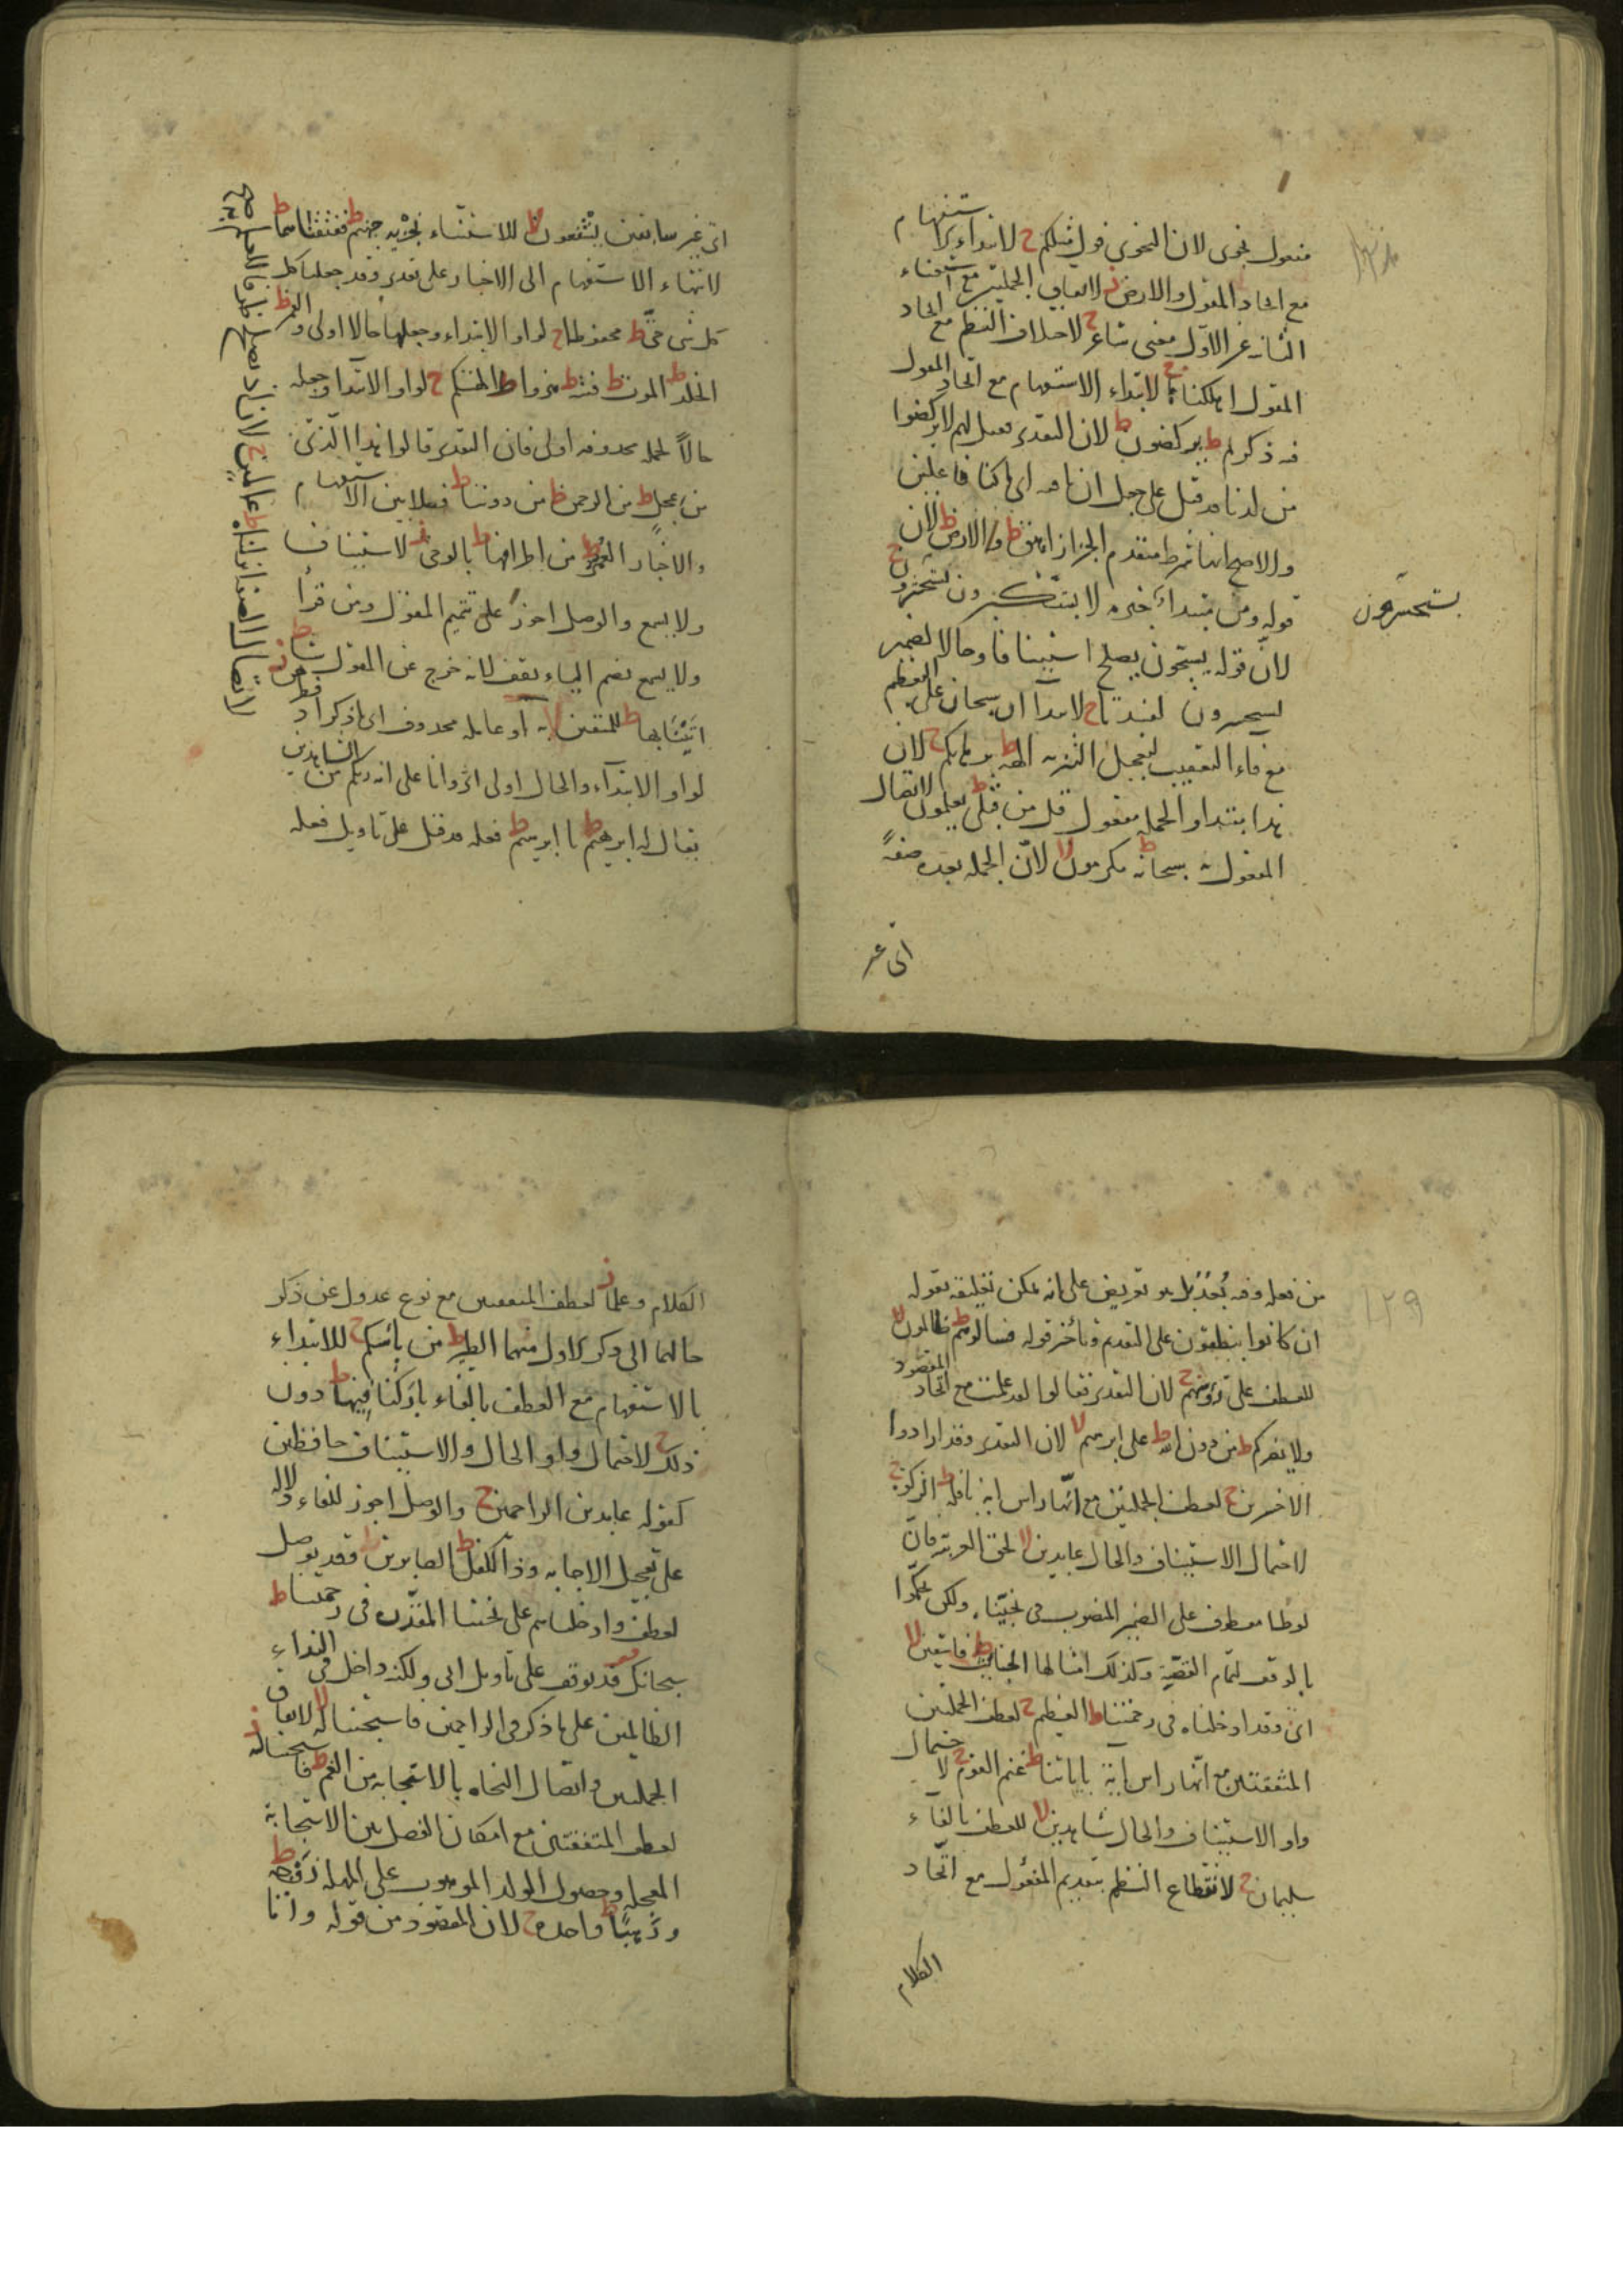 مفعول نجوى لان النجوى قول مثلكم ح لابتداء الاستفهام
مع اتحاد المقول والارض ز لاتفاق الجملتين مع استغناء
الثانية عن الاول معنى شاعر ح لاختلاف النظم مع اتحاد
المقول اهلكناها ج لابتداء الاستفهام مع اتحاد المقول
فيه ذكركم ط يركضون ط لان التقدير فقيل لهم لا تركضوا
من لدنا قد قيل على جعل ان نافية اى ما كنا فاعلين
والاصح انها شرط متقدم الجزاء زاهق ط والارض ط لان
قوله ومن مبتداء خبره لا يستكبرون يستحسرون ج
يستحسرون
لان قوله يسبحون يصلح استينافا وحالا لضمير
يستحسرون لفسدتا ح لابتداء سبحان على التعظيم
مع فاء التعقيب لتعجيل التنزيه الهة ط برهانكم ح لان
هذا مبتدا والجملة مفعول قل من قبلى ط يعلمون لا لاتصال
المفعول به سبحانه ط مكرمون لا لان الجملة بعده صفة
اى غير
اى غير سابقين يشفعون لا للاستثناء نجزيه جهنم ط ففتقناهما ط
لانتهاء الاستفهام الى الاخبار على تقدير وقد جعلنا كل
كل شى حى ط محفوظا ح لواو الابتداء وجعلها حالا اولى والقمر ط
الخلد ط الموت ط فتنة ط هزوا ط الهتكم ح لواو الابتداء وجعله
حالا لجملة محذوفة اولى فان التقدير قالوا اهذا الذى
من عجل ط من الرحمن ط من دوننا ط فصلا بين الاستفهام
والاخبار العمر ط من اطرافها ط بالوحى ز لاستيناف
ولا يسمع والوصل اجوز على تتميم المقول ومن قرأ
ولا يسمع بضم الياء يقف لانه خرج عن المقول شيئا ط
اتينا بها ط للمتقين لا او عامله محذوف اى اذكر اذ
لواو الابتداء والحال اولى اثر وانا على انه ربكم من الشاهدين
يقال له ابرهيم ط يا ابرهيم ط فعله قد قيل على تاويل فعله
من فعله وفيه بعد بل هو تعريض على انه يمكن تعليقه بقوله
ان كانوا ينطقون على التقديم وتأخر قوله فسالوهم ط ظالمون لا
للعطف على رؤسهم ح لان التقدير فقالوا لقد علمت مع اتحاد المقصود
ولا يضركم ط من دون الله ط على ابرهيم لا لان التقدير وقد ارادوا
الاخسرين ح لعطف الجملتين مع انها راس اية نافلة ط الزكوة ج
لاحتمال الاستيناف والحال عابدين لا لحق العربية فان
لوطا معطوف على الضمير المنصوب فى نجينا ولكن حكموا
بالوقف لتمام القصة وكذلك امثالها الخبائث ط فاسقين لا
اى وقد ادخلناه فى رحمتنا ط العظيم ح لعطف الجملتين
المتفقتين مع انها راس اية باياتنا ط غنم القوم ح لاحتمال
واو الاستيناف والحال شاهدين لا للعطف بالفاء
سليمان ح لانقطاع النظم بتقديم المفعول مع اتحاد
الكلام
الكلام وعلما ز لعطف المتفقتين مع نوع عدول عن ذكر
حالهما الى ذكر الاول منهما الطير ط من بأسكم ح للابتداء
بالاستفهام مع العطف بالفاء باركنا فيها ط دون
ذلك ح لاحتمال واو الحال والاستيناف حافظين
كقوله عابدين الراحمين ح والوصل اجوز للفاء ودلالة
على تعجيل الاجابة وذا الكفل ط الصابرين قد يوصل
لعطف وادخلناهم على نجينا المقدرة فى رحمتنا ط
سبحانك قد يوقف على تاويل انى ولكنه داخل فى النداء
الظالمين على ما ذكر فى الراحمين فاستجبنا له لا لاتفاق
الجملتين واتصال النجاة بالاستجابة من الغم ط فاستجبنا له ز
لعطف المتفقتين مع امكان الفصل بين الاستجابة
المعجلة وحصول الولد الموهوب على المهلة زوجه ط
ورهبا ط واحدة ح لان المقصود من قوله وانا